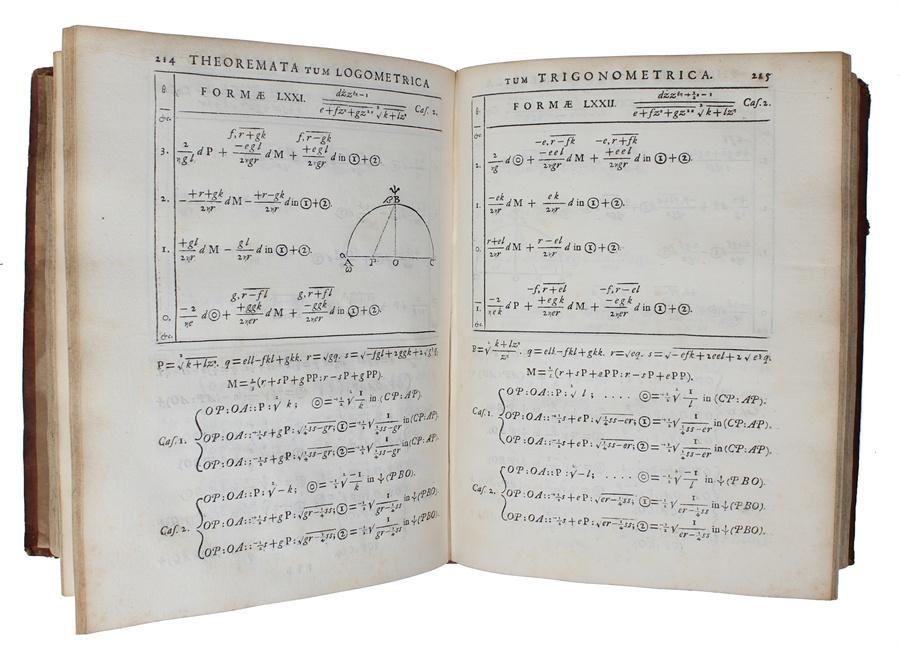 214 THEOREMATA TUM LOGOMETRICA
θ. FORMÆ LXXI. dżz^{θη−1} / e+fz^η+gz^{2η} √k+lz^η Caſ. 2.
&c.
f, r+gk f, r−gk
3. 2/ηgl d P + −egl/2ηgr d M + +egl/2ηgr d in ①+②.
2. −+r+gk/2ηr d M − +r−gk/2ηr d in ①+②.
B
1. +gl/2ηr d M − gl/2ηr d in ①+②.
A P O C
ω
g, r−fl g, r+fl
0. −2/ηe d ◎ + +ggk/2ηer d M + −ggk/2ηer d in ①+②.
&c.
P=√k+lz^η. q=ell−fkl+gkk. r=√gq. s=√−fgl+2ggk+2√g³q.
M=½(r+sP+gPP:r−sP+gPP).
Caſ. 1.
OP:OA::P:√k; ◎=−½√1/k in (CP:AP).
OP:OA::−½s+gP:√¼ss−gr; ①=−½√1/¼ss−gr in (CP:AP).
OP:OA::½s+gP:√¼ss−gr; ②=−½√1/¼ss−gr in (CP:AP).
Caſ. 2.
OP:OA::P:√−k; ◎=−½√−1/k in ψ(PBO).
OP:OA::−½s+gP:√gr−¼ss; ①=−½√1/gr−¼ss in ψ(PBO).
OP:OA::½s+gP:√gr−¼ss; ②=−½√1/gr−¼ss in ψ(PBO).
TUM TRIGONOMETRICA. 215
θ. FORMÆ LXXII. dżz^{θη+½η−1} / e+fz^η+gz^{2η} √k+lz^η Caſ. 2.
&c.
−e, r−fk −e, r−fk
2. 2/ηg d ◎ + −eel/2ηgr d M + +eel/2ηgr d in ①+②.
1. −ek/2ηr d M + ek/2ηr d in ①+②.
0. r+el/2ηr d M + r−el/2ηr d in ①+②.
−f, r+el −f, r−el
1. −2/ηek d P + +egk/2ηer d M + −egk/2ηer d in ①+②.
&c.
P=√k+lz^η/z^η. q=ell−fkl+gkk. r=√eq. s=√−efk+2eel+2√e³q.
M=½(r+sP+ePP:r−sP+ePP).
Caſ. 1.
OP:OA::P:√l; .... ◎=−½√1/l in (CP:AP).
OP:OA::−½s+eP:√¼ss−er; ①=−½√1/¼ss−er in (CP:AP).
OP:OA::½s+eP:√¼ss−er; ②=−½√1/¼ss−er in (CP:AP).
Caſ. 2.
OP:OA::P:√−l; .... ◎=−½√−1/l in ψ(PBO).
OP:OA::−½s+eP:√er−¼ss; ①=−½√1/er−¼ss in ψ(PBO).
OP:OA::½s+eP:√er−¼ss; ②=−½√1/er−¼ss in ψ(PBO).